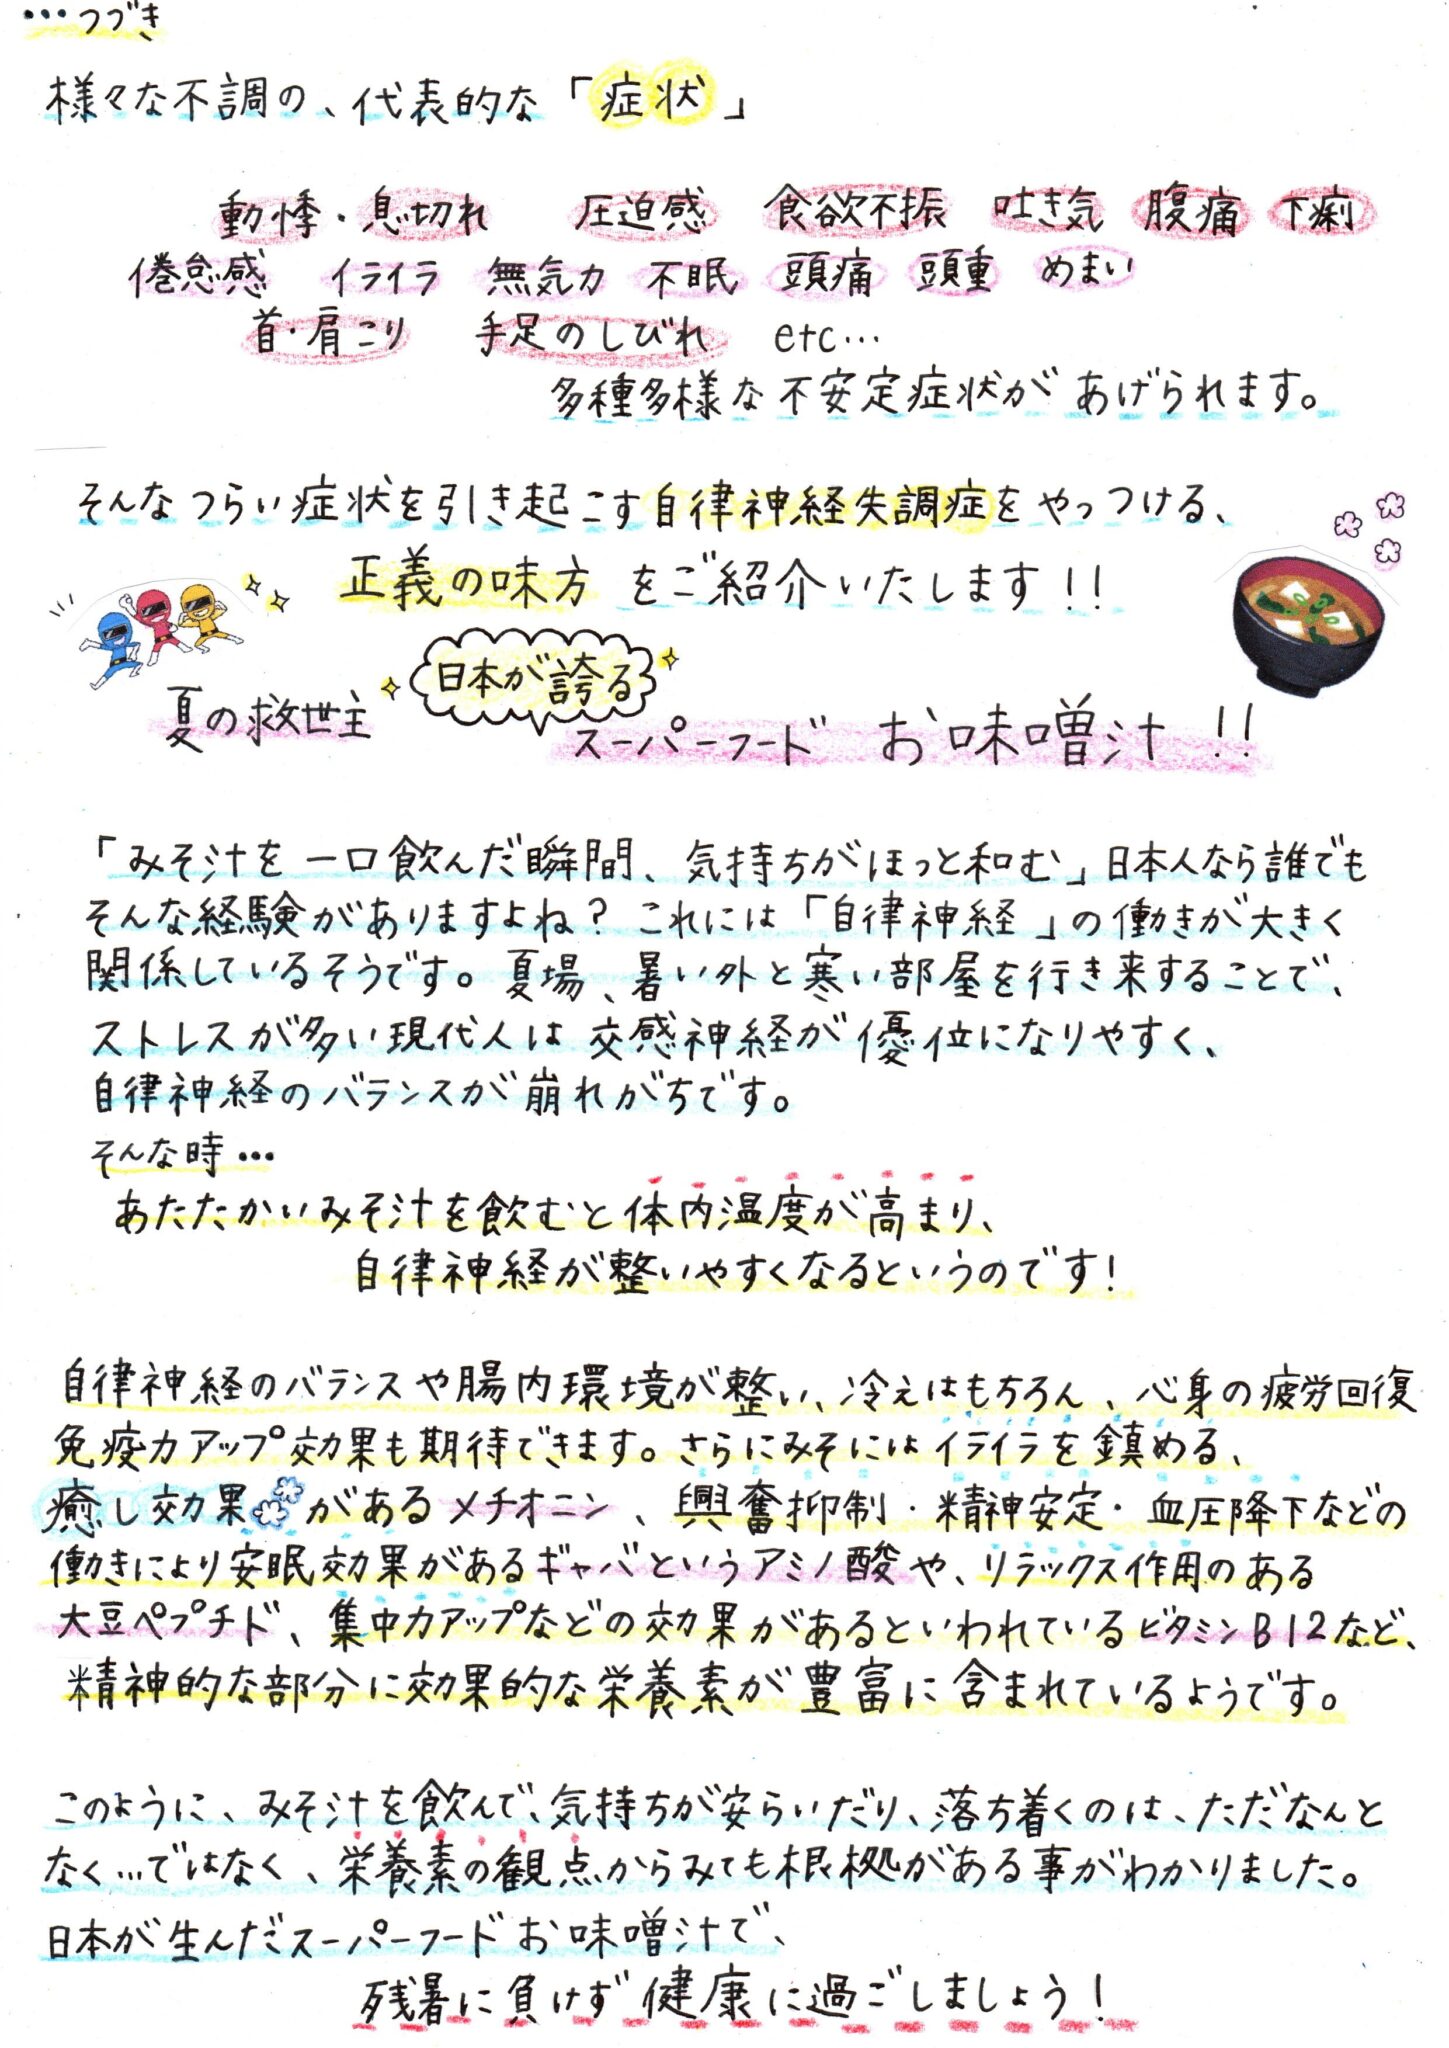 …つづき
様々な不調の、代表的な「症状」
動悸・息切れ 圧迫感 食欲不振 吐き気 腹痛 下痢
倦怠感 イライラ 無気力 不眠 頭痛 頭重 めまい
首・肩こり 手足のしびれ etc…
多種多様な不安定症状があげられます。
そんなつらい症状を引き起こす自律神経失調症をやっつける、
正義の味方をご紹介いたします!!
日本が誇る
夏の救世主 スーパーフード お味噌汁!!
「みそ汁を一口飲んだ瞬間、気持ちがほっと和む」日本人なら誰でも
そんな経験がありますよね?これには「自律神経」の働きが大きく
関係しているそうです。夏場、暑い外と寒い部屋を行き来することで、
ストレスが多い現代人は交感神経が優位になりやすく、
自律神経のバランスが崩れがちです。
そんな時…
あたたかいみそ汁を飲むと体内温度が高まり、
自律神経が整いやすくなるというのです!
自律神経のバランスや腸内環境が整い、冷えはもちろん、心身の疲労回復
免疫力アップ効果も期待できます。さらにみそにはイライラを鎮める、
癒し効果があるメチオニン、興奮抑制・精神安定・血圧降下などの
働きにより安眠効果があるギャバというアミノ酸や、リラックス作用のある
大豆ペプチド、集中力アップなどの効果があるといわれているビタミンB12など、
精神的な部分に効果的な栄養素が豊富に含まれているようです。
このように、みそ汁を飲んで、気持ちが安らいだり、落ち着くのは、ただなんと
なく…ではなく、栄養素の観点からみても根拠がある事がわかりました。
日本が生んだスーパーフードお味噌汁で、
残暑に負けず健康に過ごしましょう!